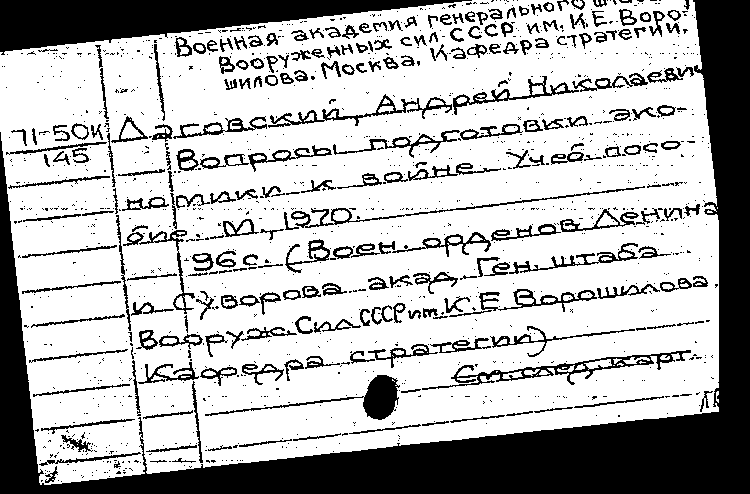 Военная академия генерального штаба
Вооруженных сил СССР им. К.Е. Воро-
шилова. Москва. Кафедра стратегии.
71-50К Лаговский, Андрей Николаевич
145 Вопросы подготовки эко-
номики к войне. Учеб. посо-
бие. М., 1970.
96с. (Воен. орденов Ленина
и Суворова акад. Ген. штаба
Вооруж. Сил СССР им. К.Е Ворошилова.
Кафедра стратегии).
См. след. карт.